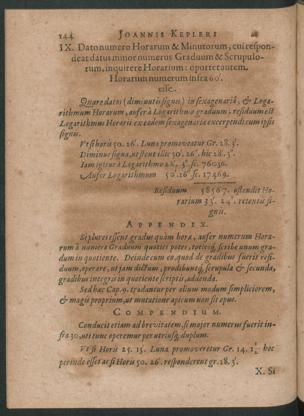 144 JOANNIS KEPLERI
IX. Dato numero Horarum & Minutorum, cui respon-
deat datus minor numerus Graduum & Scrupulo-
rum, inquirere Horarium: oportet autem,
Horarum numerum infra 60.
esse.
Quære datos (diminutis signis) in sexagenariâ, & Loga-
rithmum Horarum, aufer à Logarithmo graduum, residuum est
Logarithmus Horarii ex eadem sexagenaria excerpendi cum ipsis
signis.
Vt si horis 50. 26′. Luna promoveatur Gr. 28. 5′.
Diminue signa, ut sient illic 50. 26″. hic 28. 5″.
Iam igitur à Logarithmo 28′. 5″. sc. 76036.
Aufer Logarithmum 50. 26″ sc. 17469.
Residuum 58567. ostendit Ho-
rarium 33. 24″. retentis si-
gnis.
APPENDIX.
Si plures essent gradus quàm hora, aufer numerum Hora-
rum à numero Graduum quoties potes, toties scribe unum gra-
dum in quotiente. Deinde cum eo, quod de gradibus fuerit resi-
duum, operare, ut jam dictum, prodibuntq; scrupula & secunda,
gradibus integris in quotiente scriptis, addenda.
Sed hæc Cap. 9. tradantur per alium modum simpliciorem,
& magis proprium, ut mutatione apicum non sit opus.
COMPENDIUM.
Conducit etiam ad brevitatem, si major numerus fuerit in-
fra 30. ut tunc operemur per utriusq; duplum.
Vt si Horis 25. 13. Luna promoveretur Gr. 14. hoc
perinde esset ac si Horis 50. 26′. responderent gr. 28. 5′.
X. Si